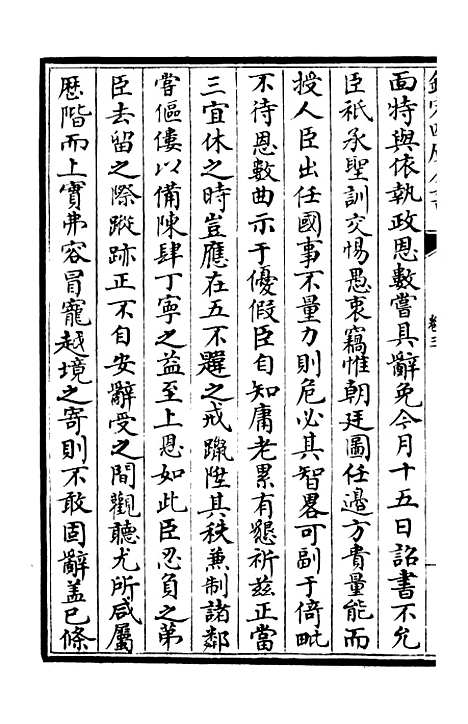 面特與依執政恩數嘗具辭免今月十五日詔書不允
臣祇承聖訓交惕愚衷竊惟朝廷圖任邊方貴量能而
授人臣出任國事不量力則危必其智畧可副于倚毗
不待恩數曲示于優假臣自知庸老累有懇祈茲正當
三宜休之時豈應在五不韙之戒躐陞其秩兼制諸鄰
嘗傴僂以備陳肆丁寧之益至上恩如此臣忍負之第
臣去留之際蹤跡正不自安辭受之間觀聽尤所咸屬
歴階而上實弗容冒寵越境之寄則不敢固辭盖已條
卷三